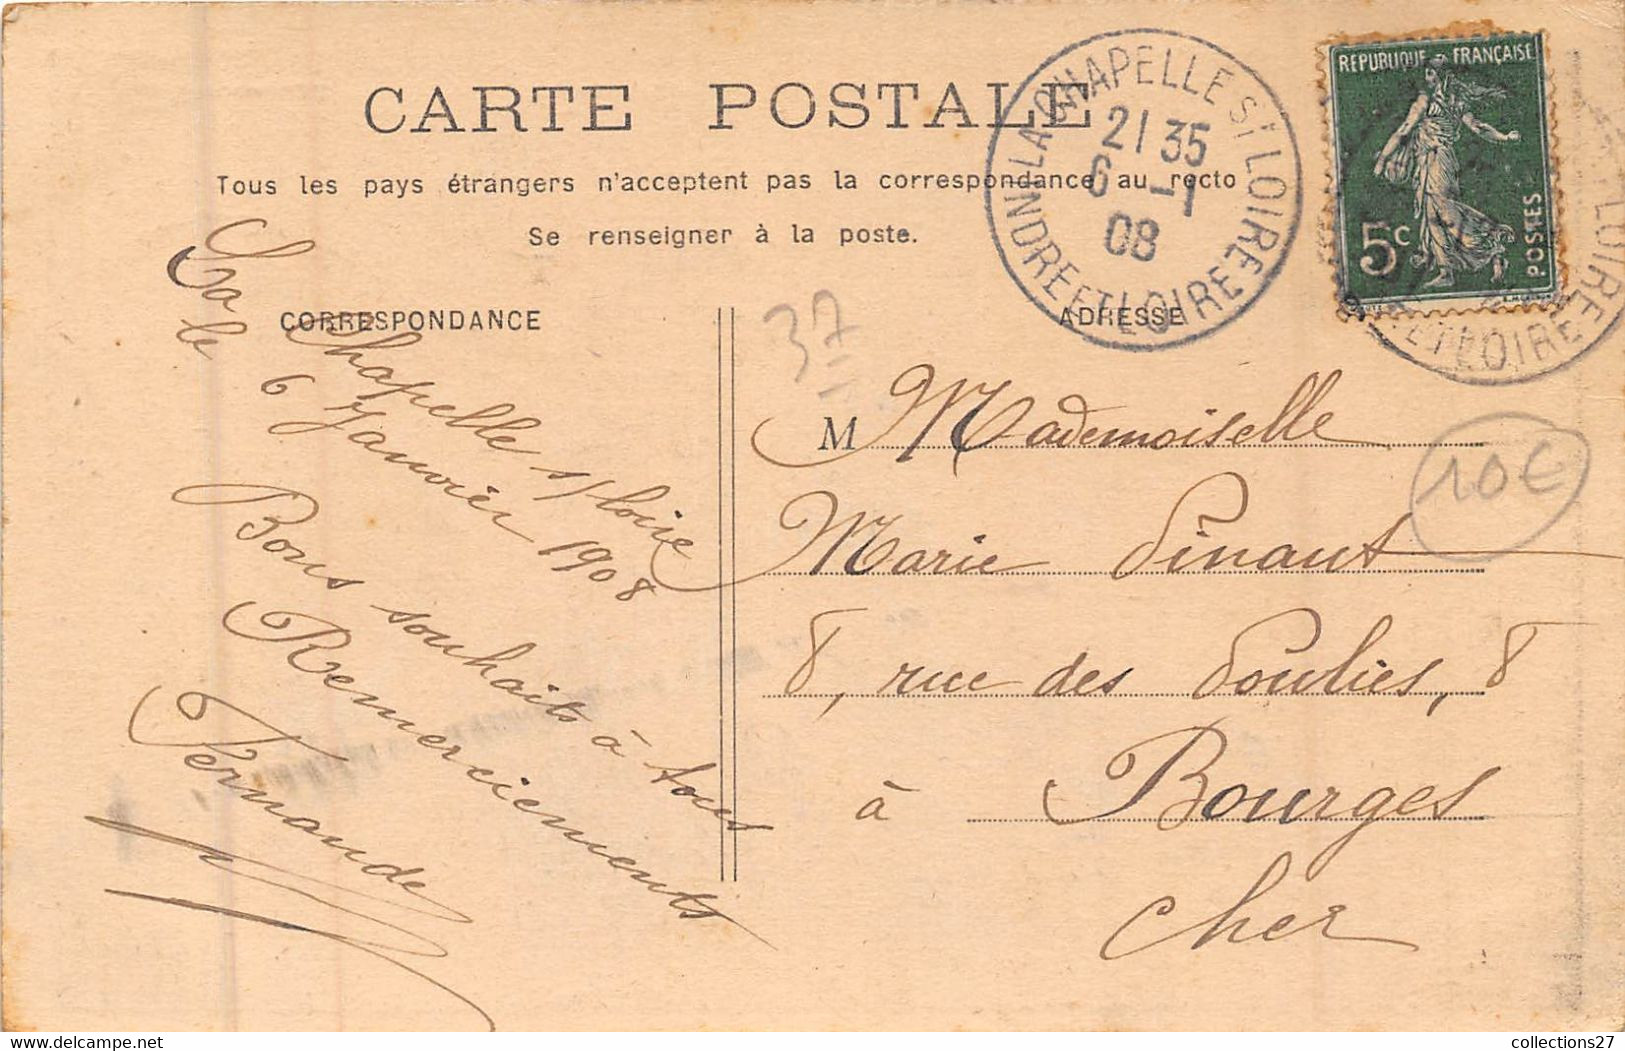 CARTE POSTALE
Tous les pays étrangers n'acceptent pas la correspondance au recto
Se renseigner à la poste.
CORRESPONDANCE
ADRESSE
LA CHAPELLE St LOIRE
INDRE ET LOIRE
21 35
6 -1
08
REPUBLIQUE FRANÇAISE
5c
POSTES
LOIRE
ET LOIRE
37
10€
La Chapelle s/ Loire
le 6 Janvier 1908
Bons souhaits à tous
Remerciements
Fernande
M Mademoiselle
Marie Pinaut
8, rue des Poulies, 8
à Bourges
Cher
collections27